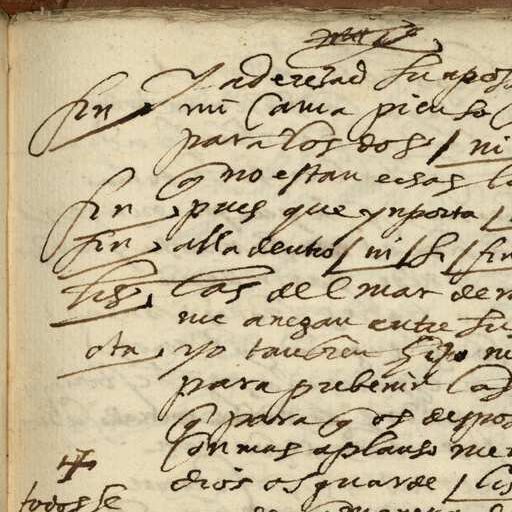 fin y aderesad su apos
mi cama pienso
para los dos / ni
q no estan ecsas la
fin pues que ynporta /
fin alla dentro / ni / si / fin
lis. las del mar de m
me anegan entre sus
ota yo tanbien fijo me
para prebenir las
q para q os despos
con mas aplauso me
dios os guarde / lis
todos se